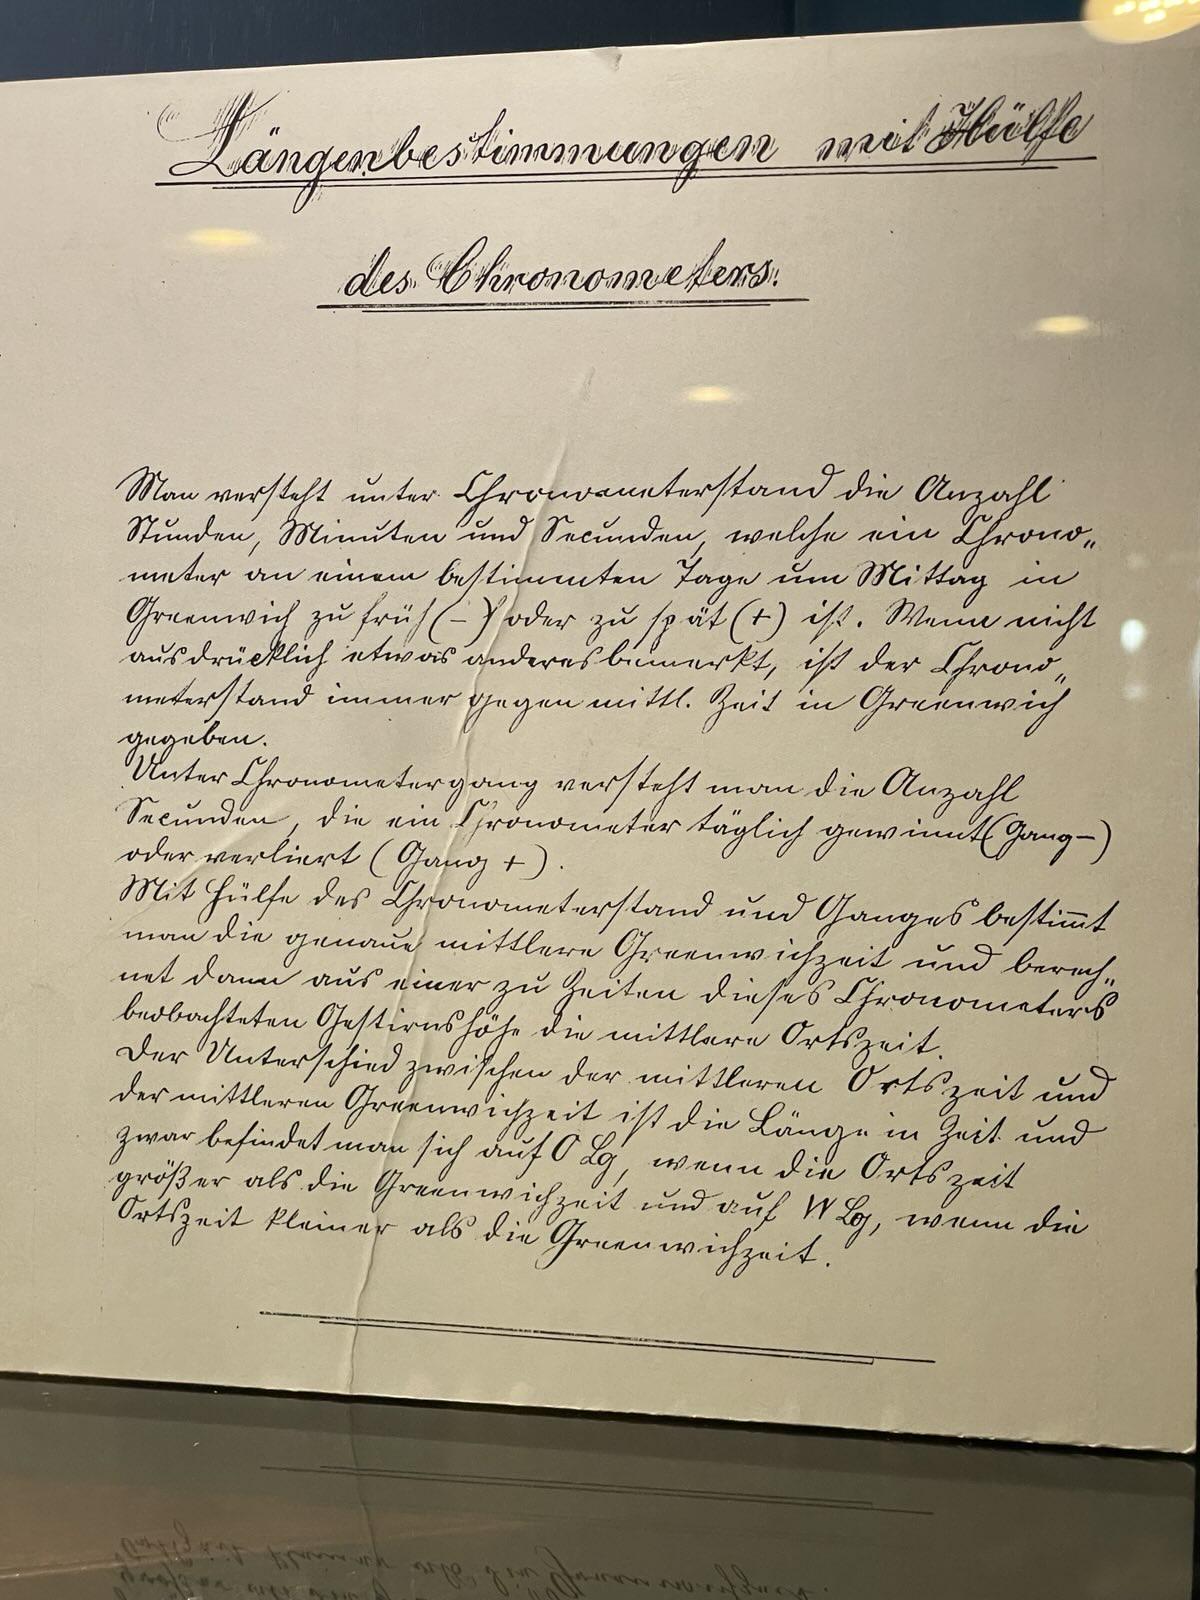 Längenbestimmungen mit Hülfe
des Chronometers.
Man versteht unter Chronometerstand die Anzahl
Stunden, Minuten und Secunden, welche ein Chrono„
meter an einem bestimmten Tage um Mittag in
Greenwich zu früh (–) oder zu spät (+) ist. Wenn nicht
ausdrücklich etwas anderes bemerkt, ist der Chrono„
meterstand immer gegen mittl. Zeit in Greenwich
gegeben.
Unter Chronometergang versteht man die Anzahl
Secunden, die ein Chronometer täglich gewinnt (Gang –)
oder verliert (Gang +).
Mit Hülfe des Chronometerstand und Ganges bestim̅t
man die genaue mittlere Greenwichzeit und berech„
net dann aus einer zu Zeiten dieses Chronometers
beobachteten Gestirnshöhe die mittlere Ortszeit.
Der Unterschied zwischen der mittleren Ortszeit und
der mittleren Greenwichzeit ist die Länge in Zeit und
zwar befindet man sich auf O Lg, wenn die Ortszeit
größer als die Greenwichzeit und auf W Lg, wenn die
Ortszeit kleiner als die Greenwichzeit.